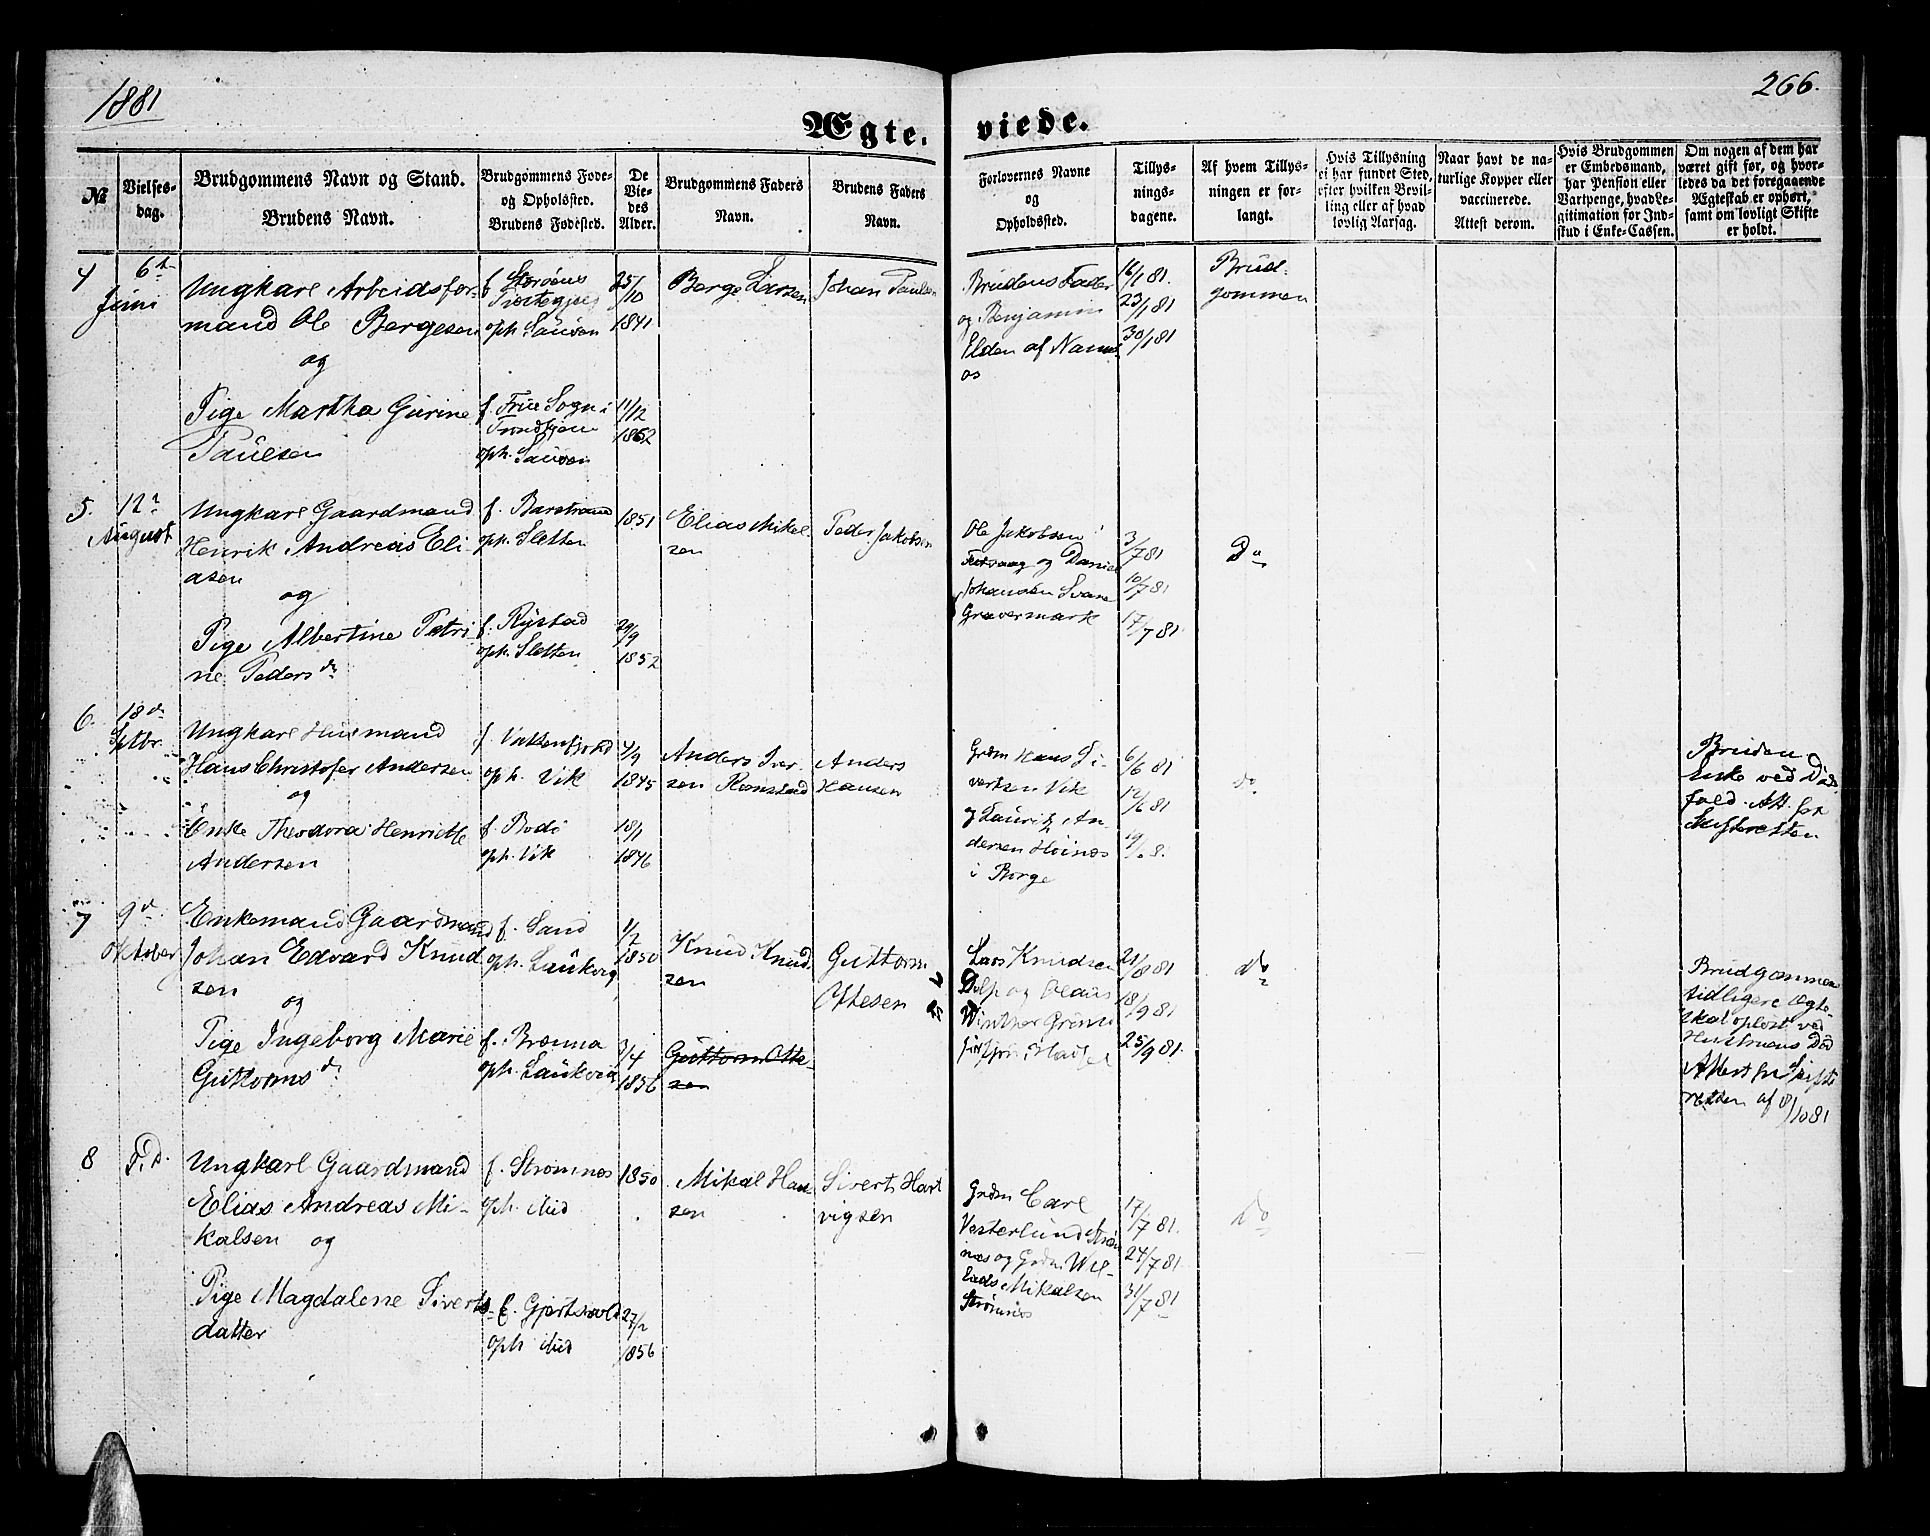 1881
266.
Ægte.
viede.
№
Vielses-
dag.
Brudgommens Navn og Stand.
Brudens Navn.
Brudgommens Føde-
og Opholdssted.
Brudens Fødested.
De
Vie-
des
Alder.
Brudgommens Faders
Navn.
Brudens Faders
Navn.
Forlovernes Navne
og
Opholdssted.
Tillys-
nings-
dagene.
Af hvem Tillys-
ningen er for-
langt.
Hvis Tillysning
ei har fundet Sted,
efter hvilken Bevil-
ling eller af hvad
lovlig Aarsag.
Naar havt de na-
turlige Kopper eller
vaccinerede.
Attest derom.
Hvis Brudgommen
er Embedsmand,
har Pension eller
Vartpenge, hvad Le-
gitimation for Ind-
skud i Enke-Cassen.
Om nogen af dem har
været gift før, og hvor-
ledes da det foregaaende
Ægteskab er ophørt,
samt om lovligt Skifte
er holdt.
4
6te
Juni
Ungkarl Arbeidsfor-
mand Ole Bergesen
og
Pige Martha Gurine
Paulsen
f. Storøens
oph. Sauøen
f. Frue Sogn i
Trondhjem
oph. Sauøen
25/10
1841
11/12
1862
Berge Larsen
Johan Paulsen
Brudens Fader
og Benjamin
Elden af Nams
os
16/1 81.
23/1 81
30/1 81
Brud-
gommen
5.
12te
August
Ungkarl Gaardmand
Henrik Andreas Eli-
asen
og
Pige Albertine Petri
ne Pedersdr
f. Barstrand
oph. Sletten
f. Rystad
oph. Sletten
1851
29/9
1852
Elias Mikel
sen
Peder Jakobsen
Ole Jakobsen
og Daniel
Johansen Svare
Gravermark
3/7 81
10/7 81
17/7 81.
Do
6.
18de
Septbr.
Ungkarl Husmand
Hans Christofer Andersen
og
Enke Theodora Henriette
Andersen
f. Vattenfjord
oph. Vik
f. Bodø
oph. Vik
4/9
1845
18/1
1846
Anders Iver
sen Ramstad
Anders
Hansen
Grdm Hans Si-
vertsen Vik
og Lauritz An
dersen Høinæs
i Borge
6/6 81
12/6 81
19/6 8.
do
Bruden
Enke ved Døds
fald. Att. fra
Skifteretten
7
9de
Oktober
Enkemand Gaardmand
Johan Edvard Knud
sen
og
Pige Ingeborg Marie
Guttormsdr
f. Sand
oph. Laukvig
f. Brenna
oph. Laukvig
1/2
1850
3/4
1856
Knud Knud-
sen
Guttorm Otte-
sen
Guttorm
Ottesen
Lars Knudsen
Delp og Olaus
Winther Grims
fjord, Hadsel
21/8 81
18/9 81
25/9 81.
do
Brudgommens
tidligere Ægte-
skab opløst ved
Hustruens Død
Attest fra Skifte
retten af 8/10 81
8
S. D.
Ungkarl Gaardmand
Elias Andreas Mi-
kalsen og
Pige Magdalene Siverts
datter
f. Strømnes
oph. Mid
f. Gjertsvold
oph Mid
1850
27/2
1856
Mikal Han
sen
Sivert Hart
vigsen
Grdm Carl
Vesterlund Strøm
næs og Grdm Wil-
lads Mikalsen
Strømnes
17/7 81.
24/7 81
31/7 81
do